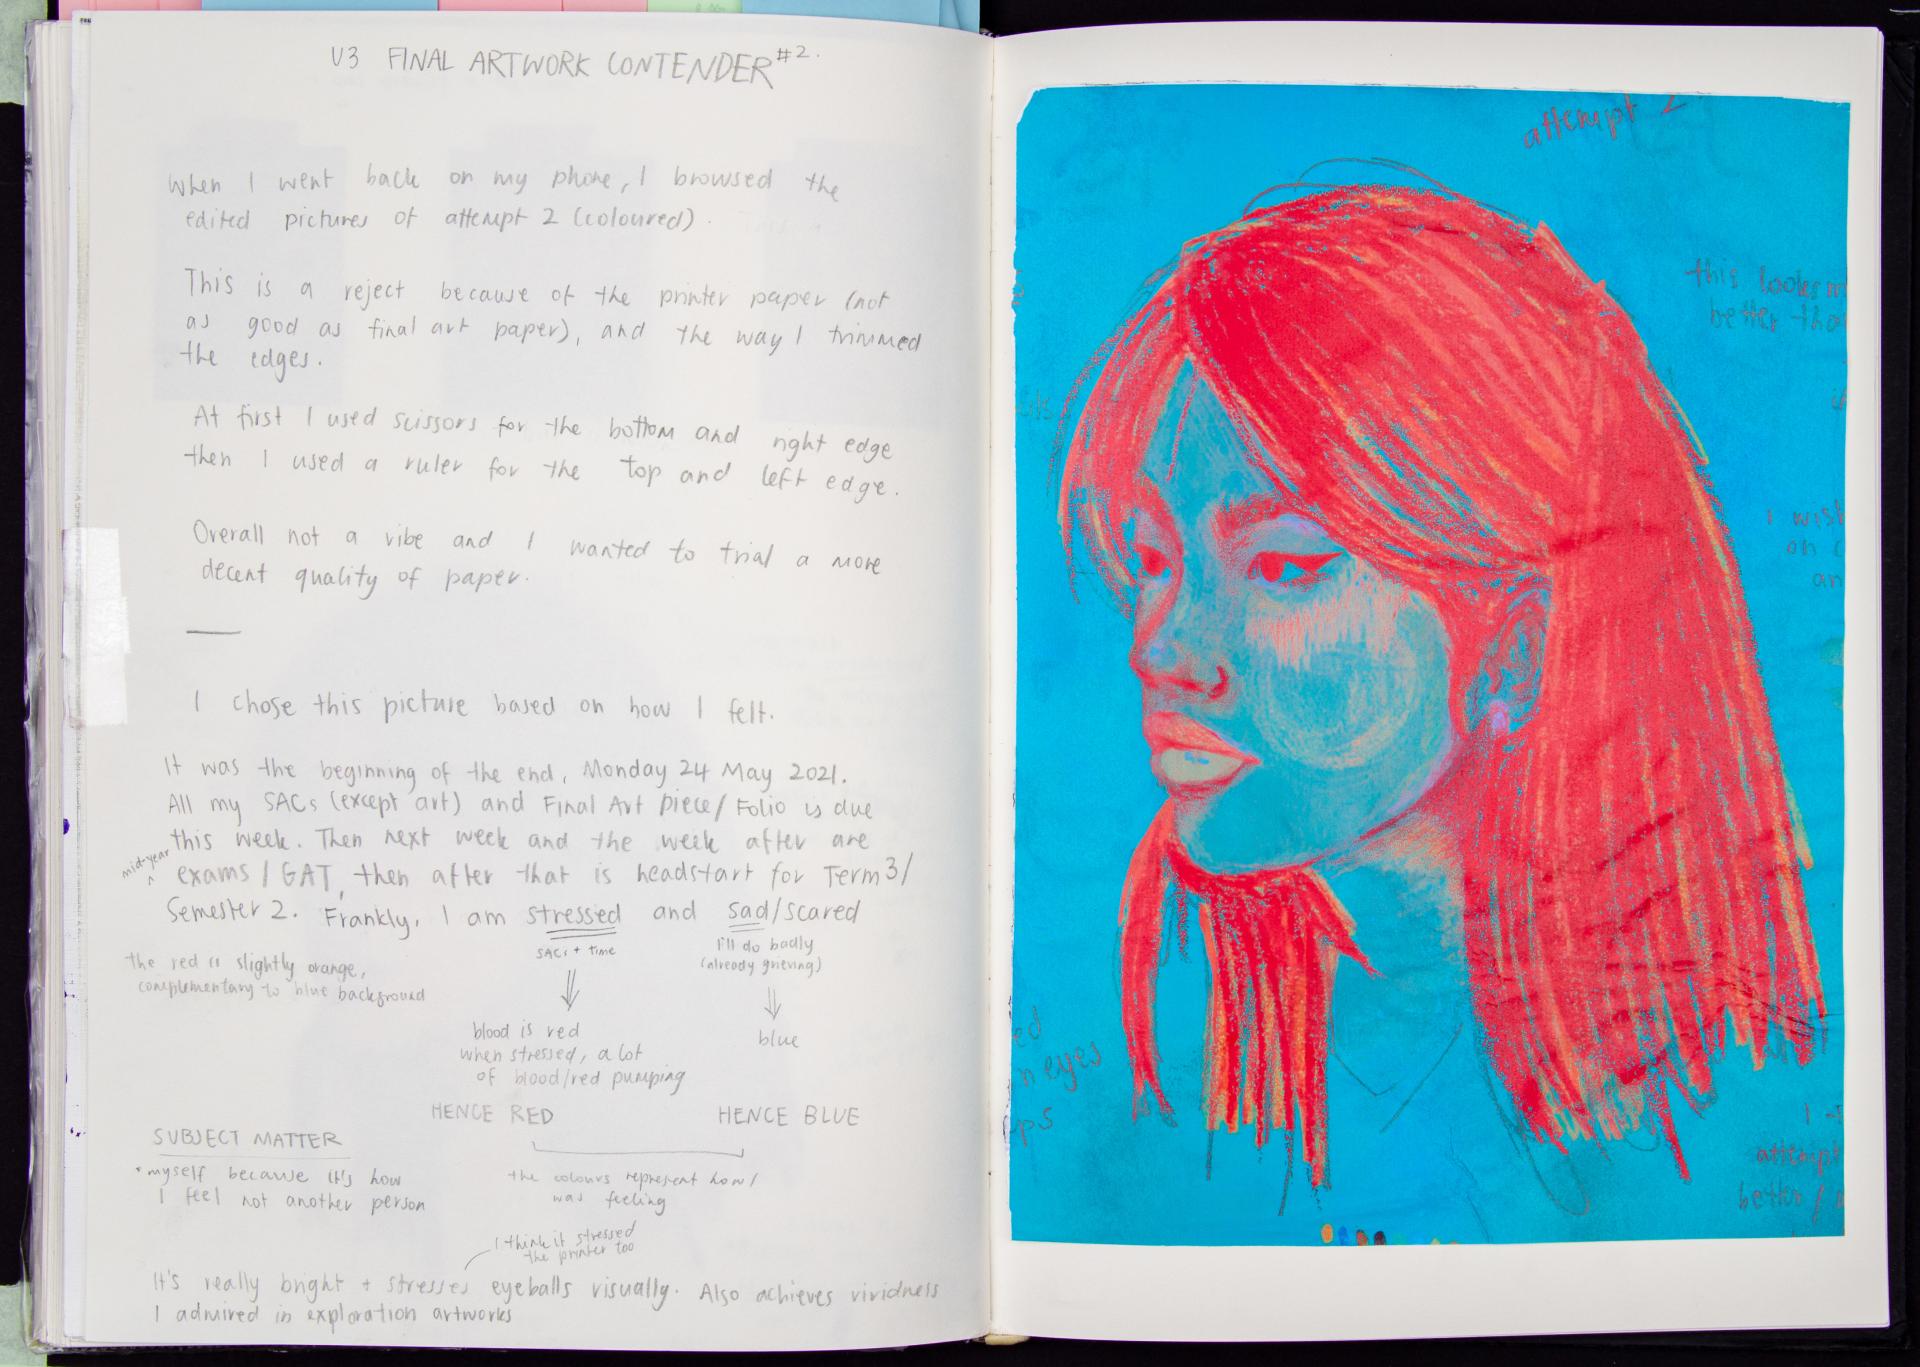 U3 FINAL ARTWORK CONTENDER #2.
When I went back on my phone, I browsed the
edited pictures of attempt 2 (coloured).
This is a reject because of the printer paper (not
as good as final art paper), and the way I trimmed
the edges.
At first I used scissors for the bottom and right edge
then I used a ruler for the top and left edge.
Overall not a vibe and I wanted to trial a more
decent quality of paper.
I chose this picture based on how I felt.
It was the beginning of the end, Monday 24 May 2021.
All my SACs (except art) and Final Art piece/Folio is due
this week. Then next week and the week after are
mid-year
exams/GAT, then after that is headstart for Term 3/
Semester 2. Frankly, I am stressed and sad/scared
SACs + time
I'll do badly
(already grieving)
the red is slightly orange,
complementary to blue background
blood is red
when stressed, a lot
of blood/red pumping
blue
HENCE RED
HENCE BLUE
the colours represent how I
was feeling
SUBJECT MATTER
• myself because it's how
I feel not another person
I think it stressed
the printer too
It's really bright + stresses eyeballs visually. Also achieves vividness
I admired in exploration artworks
attempt 2
this looks
better tha
I wish
on
an
eyes
ps
attempt
better /